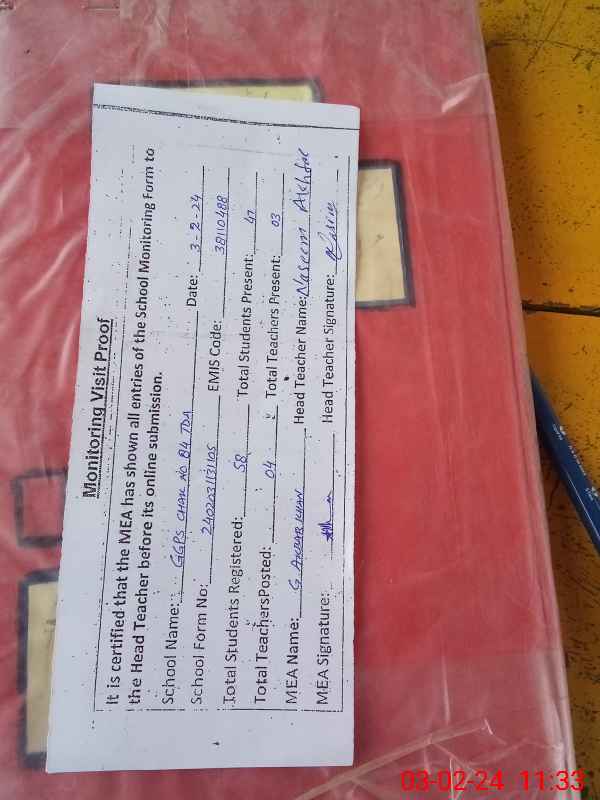 Monitoring Visit Proof
It is certified that the MEA has shown all entries of the School Monitoring Form to
the Head Teacher before its online submission.
School Name: GGPS CHAK NO 84 TDA Date: 3-2-24
School Form No: 2402031131105 EMIS Code: 38110488
Total Students Registered: 58 Total Students Present: 47
Total TeachersPosted: 04 Total Teachers Present: 03
MEA Name: G AKBAR KHAN Head Teacher Name: Naseem Akhtar
MEA Signature: Head Teacher Signature:
03-02-24 11:33